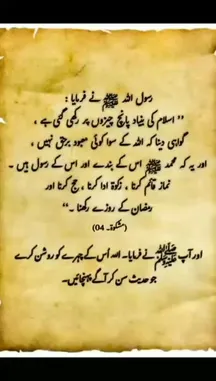 رسول اللہ ﷺ نے فرمایا :
’’ اسلام کی بنیاد پانچ چیزوں پر رکھی گئی ہے ،
گواہی دینا کہ اللہ کے سوا کوئی معبود برحق نہیں ،
اور یہ کہ محمد ﷺ اس کے بندے اور اس کے رسول ہیں ۔
نماز قائم کرنا ، زکوٰۃ ادا کرنا ، حج کرنا اور
رمضان کے روزے رکھنا ۔‘‘
(مشکوٰۃ۔ 04)
اور آپ ﷺ نے فرمایا۔ اللہ اُس کے چہرے کو روشن کرے
جو حدیث سن کر آگے پہنچائیں۔